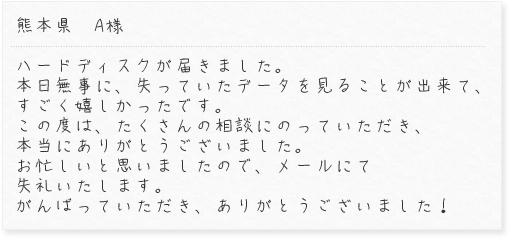 熊本県　A様
ハードディスクが届きました。
本日無事に、失っていたデータを見ることが出来て、
すごく嬉しかったです。
この度は、たくさんの相談にのっていただき、
本当にありがとうございました。
お忙しいと思いましたので、メールにて
失礼いたします。
がんばっていただき、ありがとうございました！